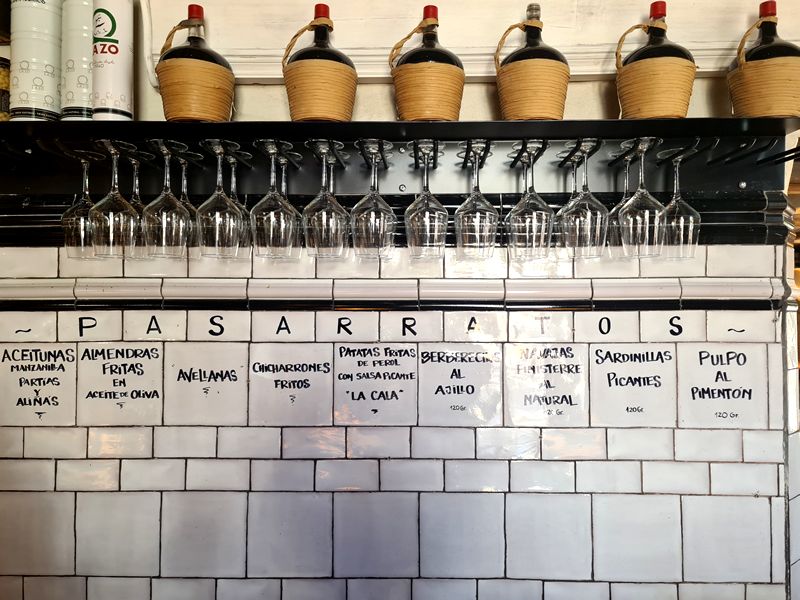 AZO
~ PASARRATOS ~
ACEITUNAS
MANZANILLA
PARTIAS
Y
ALIÑÁS
ALMENDRAS
FRITAS
EN
ACEITE DE OLIVA
AVELLANAS
CHICHARRONES
FRITOS
PATATAS FRITAS
DE PEROL
CON SALSA PICANTE
"LA CALA"
BERBERECHOS
AL
AJILLO
120 Gr.
NAVAJAS
FINISTERRE
AL
NATURAL
SARDINILLAS
PICANTES
120 Gr.
PULPO
AL
PIMENTÓN
120 Gr.